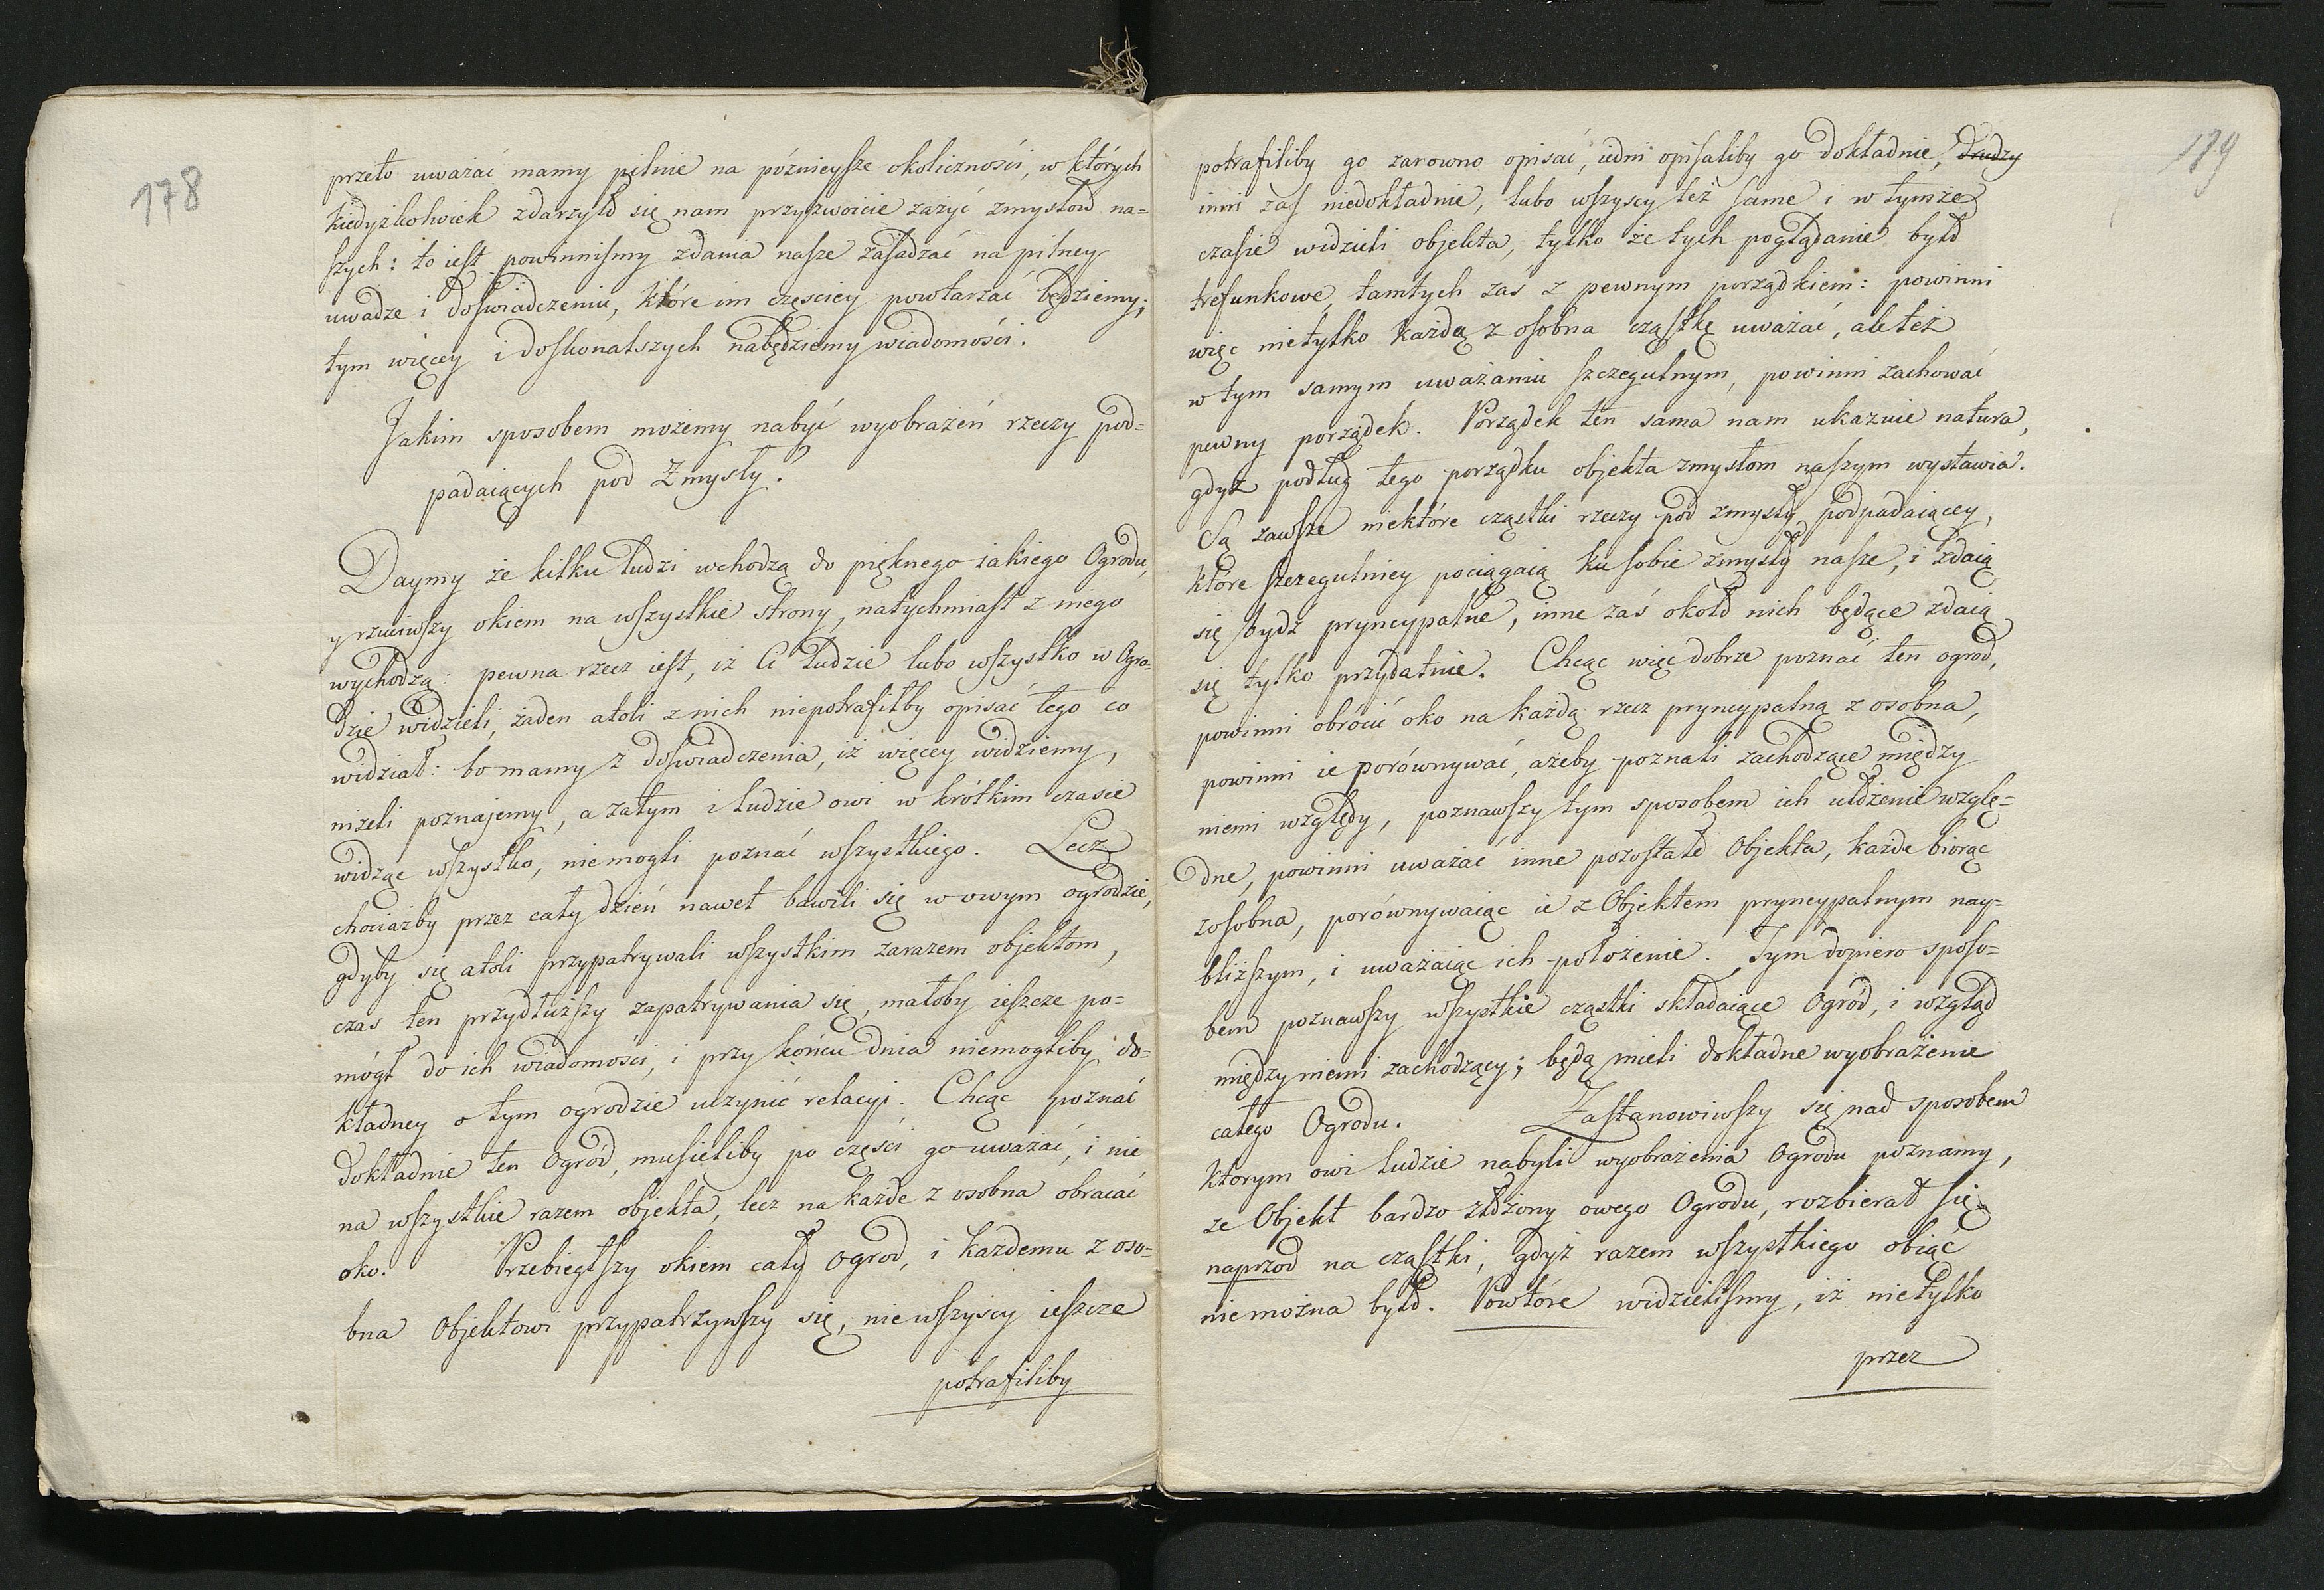 178
przeto uważać mamy pilnie na póznieysze okoliczności, w których
kiedyżkolwiek zdarzyło się nam przyzwoicie zażyć zmysłow na=
szych: to iest powinnismy zdania nasze zasadzać na pilney
uwadze i doswiadczeniu, które im częsciey powtarzać będziemy;
tym więcey i doskonalszych nabędziemy wiadomości.
Jakim sposobem możemy nabyć wyobrażeń rzeczy pod=
padaiących pod Zmysły?
Daymy że kilku ludzi wchodzą do pięknego iakiego Ogrodu,
y rzuciwszy okiem na wszystkie strony, natychmiast z niego
wychodzą: pewna rzecz iest, iż Ci ludzie lubo wszystko w Ogro=
dzie widzieli, żaden atoli z nich niepotrafiłby opisać tego co
widział: bo mamy z doswiadczenia, iż więcey widziemy,
niżeli poznajemy, a zatym i ludzie owi w krótkim czasie
widząc wszystko, niemogli poznać wszystkiego. Lecz
chociażby przez cały dzień nawet bawili się w owym ogrodzie,
gdyby się atoli przypatrywali wszystkim zarazem objektom,
czas ten przydłuższy zapatrywania się, małoby ieszcze po=
mógł do ich wiadomości, i przy końcu dnia niemogliby do=
kładney o tym ogrodzie uczynić relacyi. Chcąc poznać
dokładnie ten Ogród, musieliby po części go uważać, i nie
na wszystkie razem objekta, lecz na każde z osobna obracać
oko. Przebiegłszy okiem cały Ogrod, i każdemu z oso=
bna Objektowi przypatrzywszy się, nie wszyscy ieszcze
potrafiliby
179
potrafiliby go zarowno opisać, iedni opisaliby go dokładnie, drudzy
inni zas niedokładnie, lubo wszyscy też same i w tymże
czasie widzieli objekta, tylko że tych poglądanie było
trefunkowe, tamtych zaś z pewnym porządkiem: powinni
więc nietylko każdą z osobna cząstkę uważać, ale też
w tym samym uważaniu szczegulnym, powinni zachować
pewny porządek. Porządek ten sama nam ukazuie natura,
gdyż podług tego porządku objekta zmysłom naszym wystawia.
Są zawsze niektóre cząstki rzeczy pod zmysły podpadaiącey,
które szczegulniey pociągaią ku sobie zmysły nasze, i zdaią
się bydź pryncypalne, inne zaś około nich będące zdaią
się tylko przydatnie. Chcąc więc dobrze poznać ten ogrod,
powinni obrócić oko na każdą rzecz pryncypalną z osobna,
powinni ie porównywać, ażeby poznali zachodzące między
niemi względy, poznawszy tym sposobem ich ułożenie wzglę=
dne, powinni uważać inne pozostałe Objekta, każde biorąc
zosobna, porównywaiąc ie z Objektem pryncypalnym nay=
bliższym, i uważaiąc ich położenie. Tym dopiero sposo=
bem poznawszy wszystkie cząstki składaiące Ogród, i wzgląd
między niemi zachodzący; będą mieli dokładne wyobrażenie
całego Ogrodu. Zastanowiwszy się nad sposobem
ktorym owi ludzie nabyli wyobrażenia Ogrodu poznamy,
ze Objekt bardzo złożony owego Ogrodu, rozbierał się
naprzod na cząstki, gdyż razem wszystkiego obiąć
niemożna było. Powtóre widzielismy, iż nietylko
przez